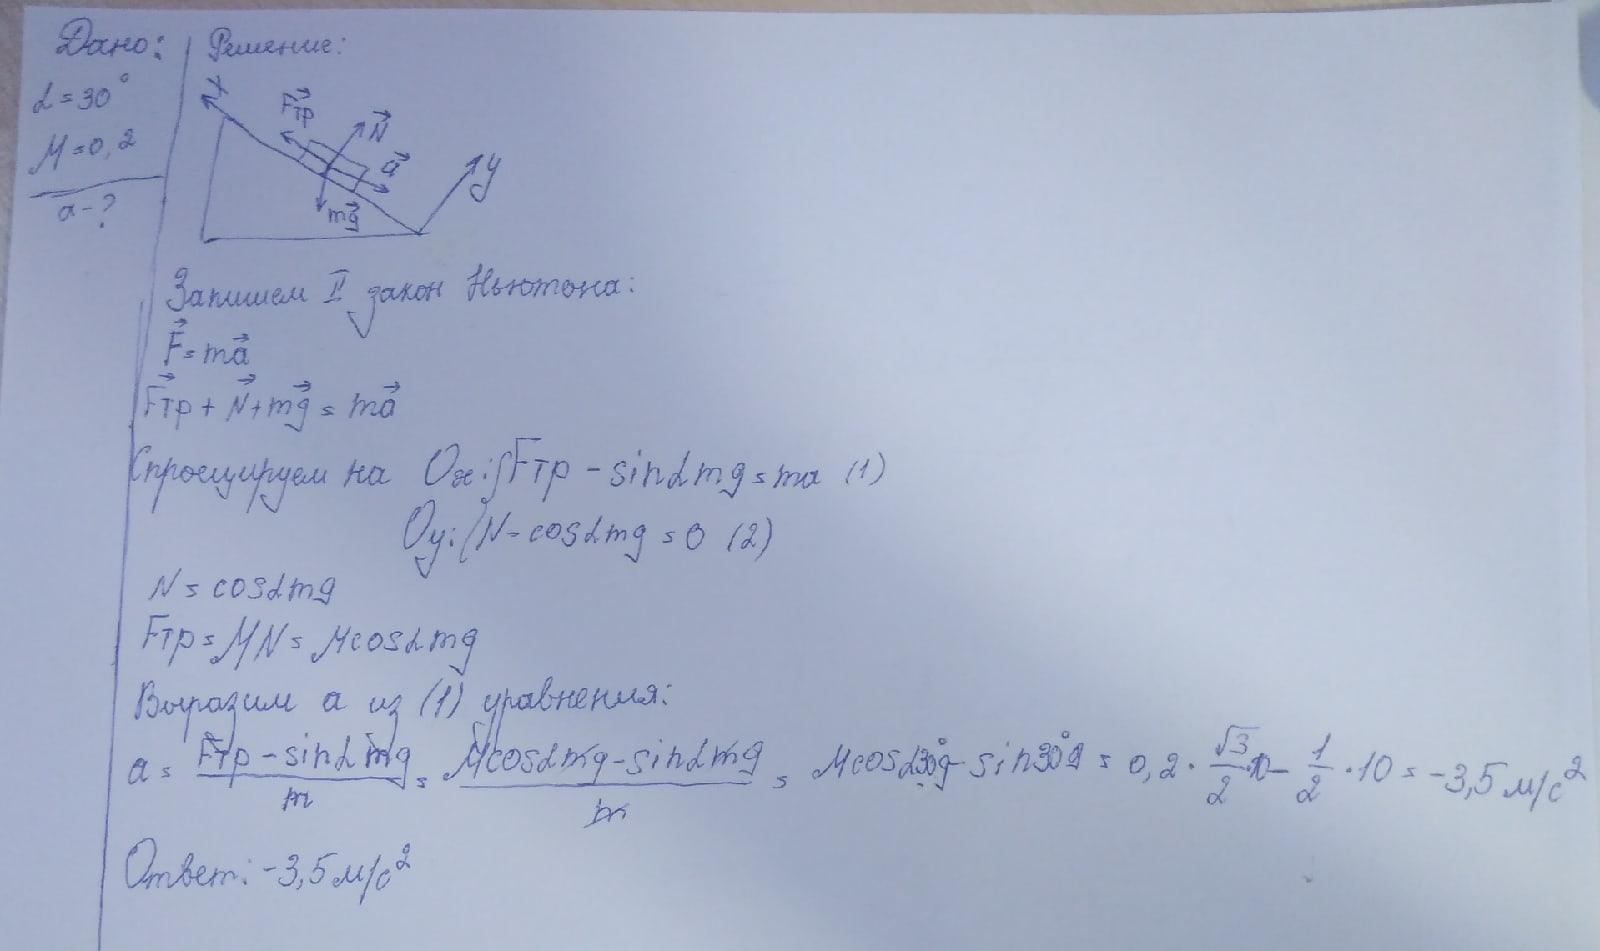 Дано:
α = 30°
μ = 0,2
a - ?
Решение:
x
Fтр
N
a
mg
y
Запишем II закон Ньютона:
F = ma
Fтр + N + mg = ma
Спроецируем на Ox: { Fтр - sinαmg = ma (1)
Oy: { N - cosαmg = 0 (2)
N = cosαmg
Fтр = μN = μcosαmg
Выразим a из (1) уравнения:
a = (Fтр - sinαmg)/m = (μcosαmg - sinαmg)/m = μcos30°g - sin30°g = 0,2 · √3/2 · 10 - 1/2 · 10 = -3,5 м/с²
Ответ: -3,5 м/с²